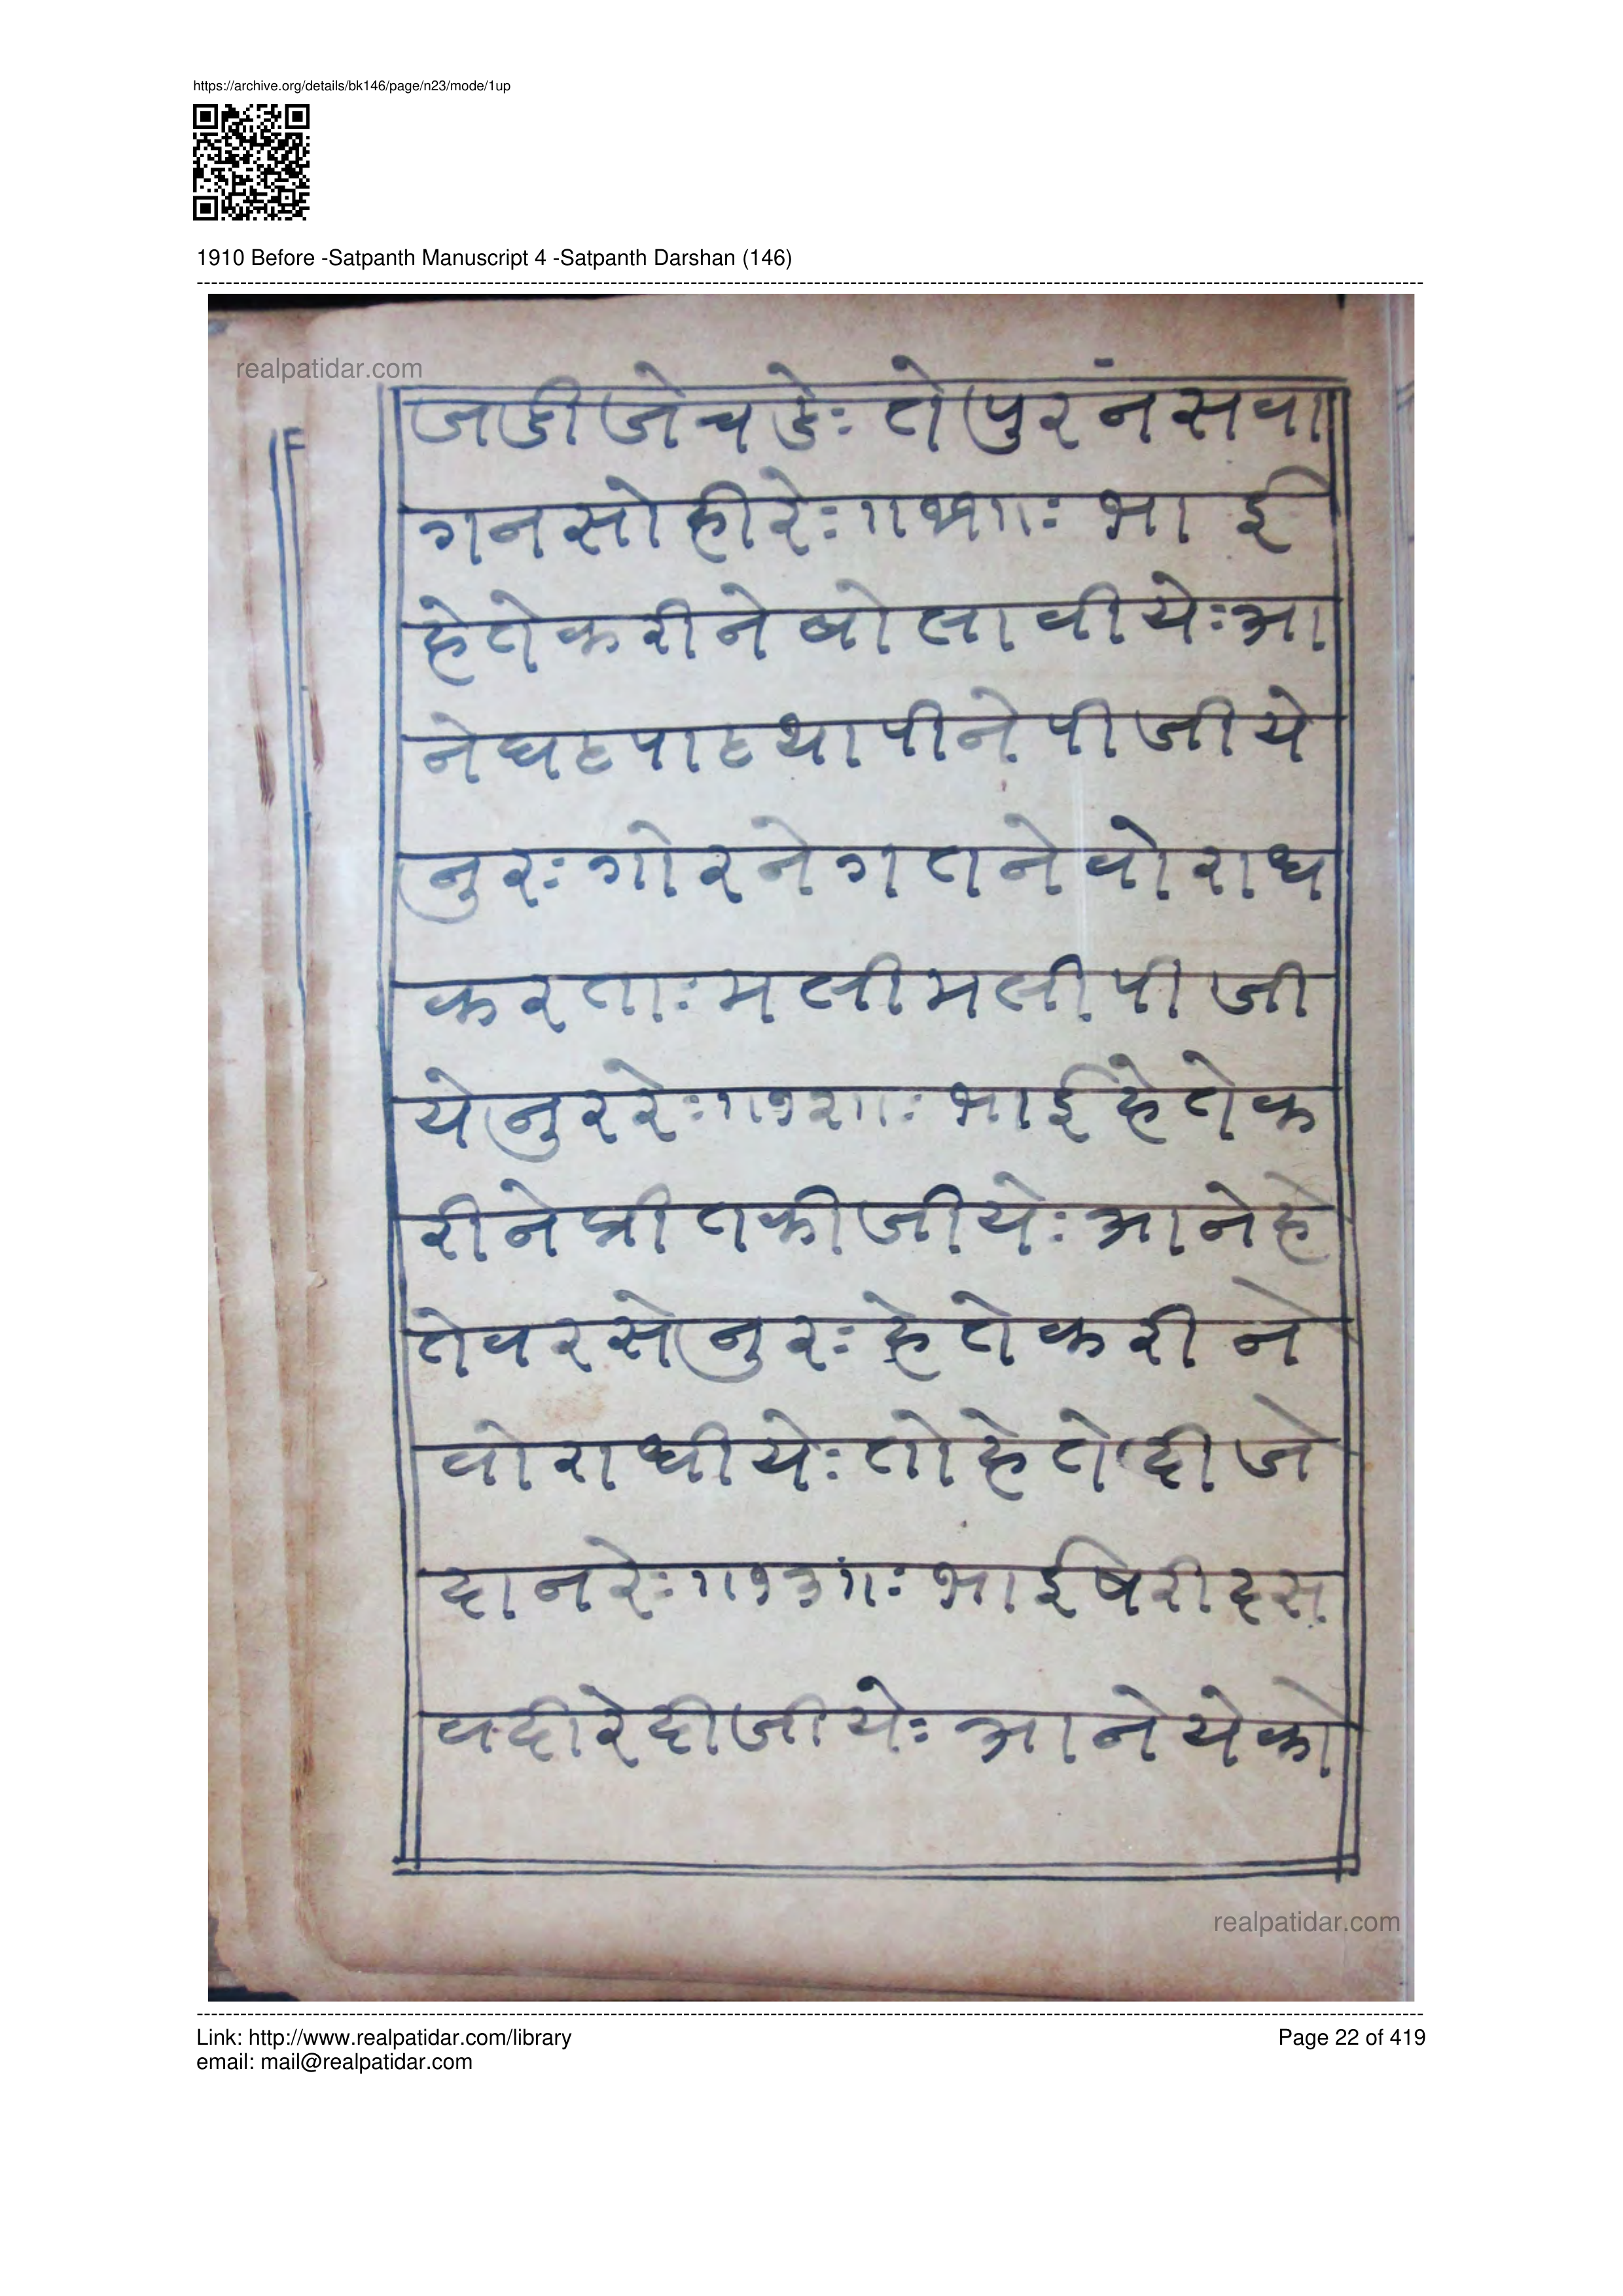 https://archive.org/details/bk146/page/n23/mode/1up
1910 Before -Satpanth Manuscript 4 -Satpanth Darshan (146)
realpatidar.com
जडी जे चडेः ते पुरनं सवा
गन सो ही रेः ॥११॥ः भाई
हेते करीने बोलावीयेः आ
ने घट पाट थापीने पीजीये
नुरः गोरने गतने वोराध
करताः मली मली पीजी
ये नुर रेः ॥१२॥ः भाई हेते क
रीने प्रीत कीजीयेः आने हे
ते वरसे नुरः हेते करीने
वोराधीयेः तो हेते दीजे
दान रेः ॥१३॥ः भाई षेरी दस
वदी रे दीजीयेः आने येको
realpatidar.com
Link: http://www.realpatidar.com/library
Page 22 of 419
email: mail@realpatidar.com